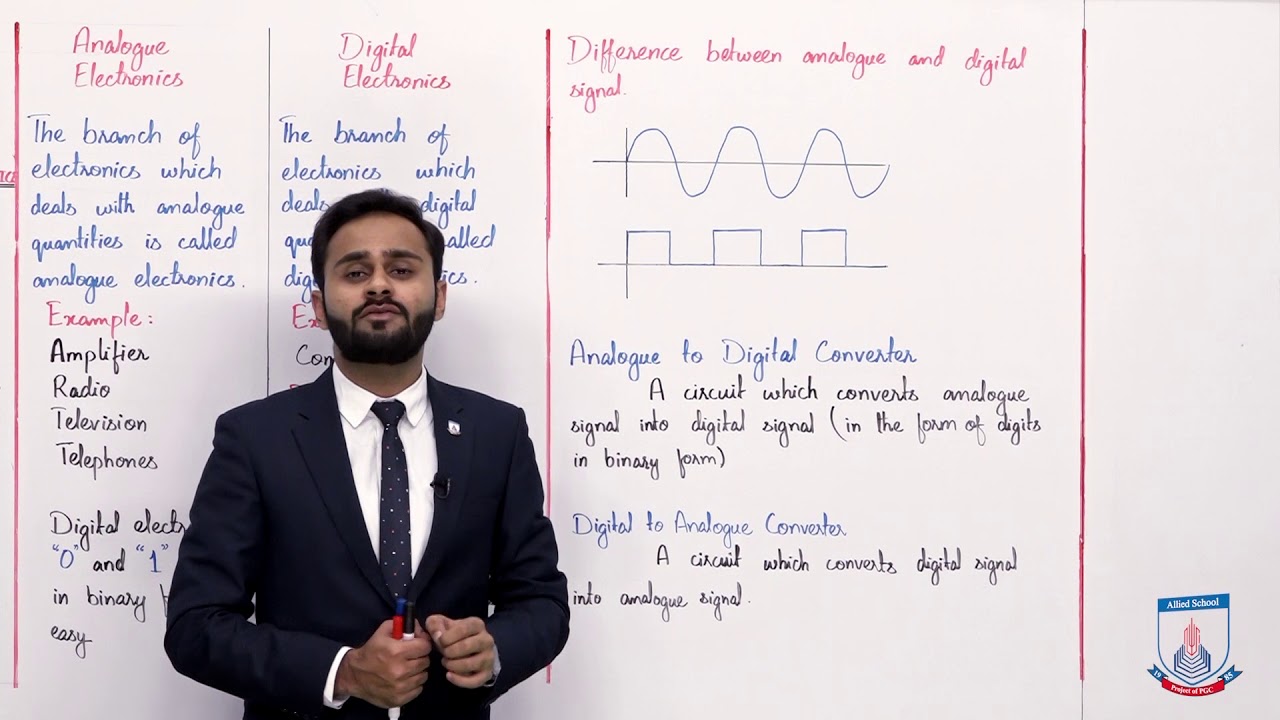 Analogue
Electronics
The branch of
electronics which
deals with analogue
quantities is called
analogue electronics.
Example:
Amplifier
Radio
Television
Telephones
Digital
"0" and "1"
in binary
easy
Digital
Electronics
The branch of
electronics which
digital
Difference between analogue and digital
signal.
Analogue to Digital Converter
A circuit which converts analogue
signal into digital signal (in the form of digits
in binary form)
Digital to Analogue Converter
A circuit which converts digital signal
into analogue signal.
Allied School
19 85
Project of PGC